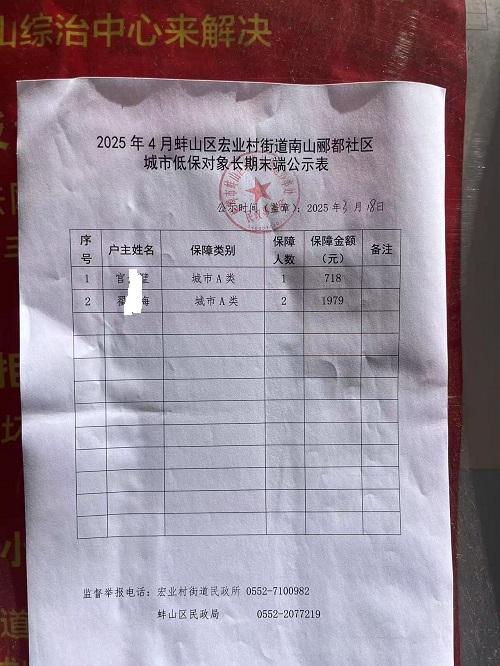 山综治中心来解决
2025 年 4 月蚌山区宏业村街道南山郦都社区
城市低保对象长期末端公示表
公示时间（盖章）：2025年3月18日
序号 户主姓名 保障类别 保障人数 保障金额（元） 备注
1 官 城市 A 类 1 718
2 梅 城市 A 类 2 1979
监督举报电话：宏业村街道民政所 0552-7100982
蚌山区民政局 0552-2077219
小
道